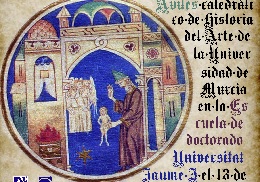 Aviles·catedráti
co·de·historia
del·Arte·de
la·Univer
sidad·de
Murcia
en·la·Es
cuela·de
doctorado
Universitat
Jaume·I·el·13·de